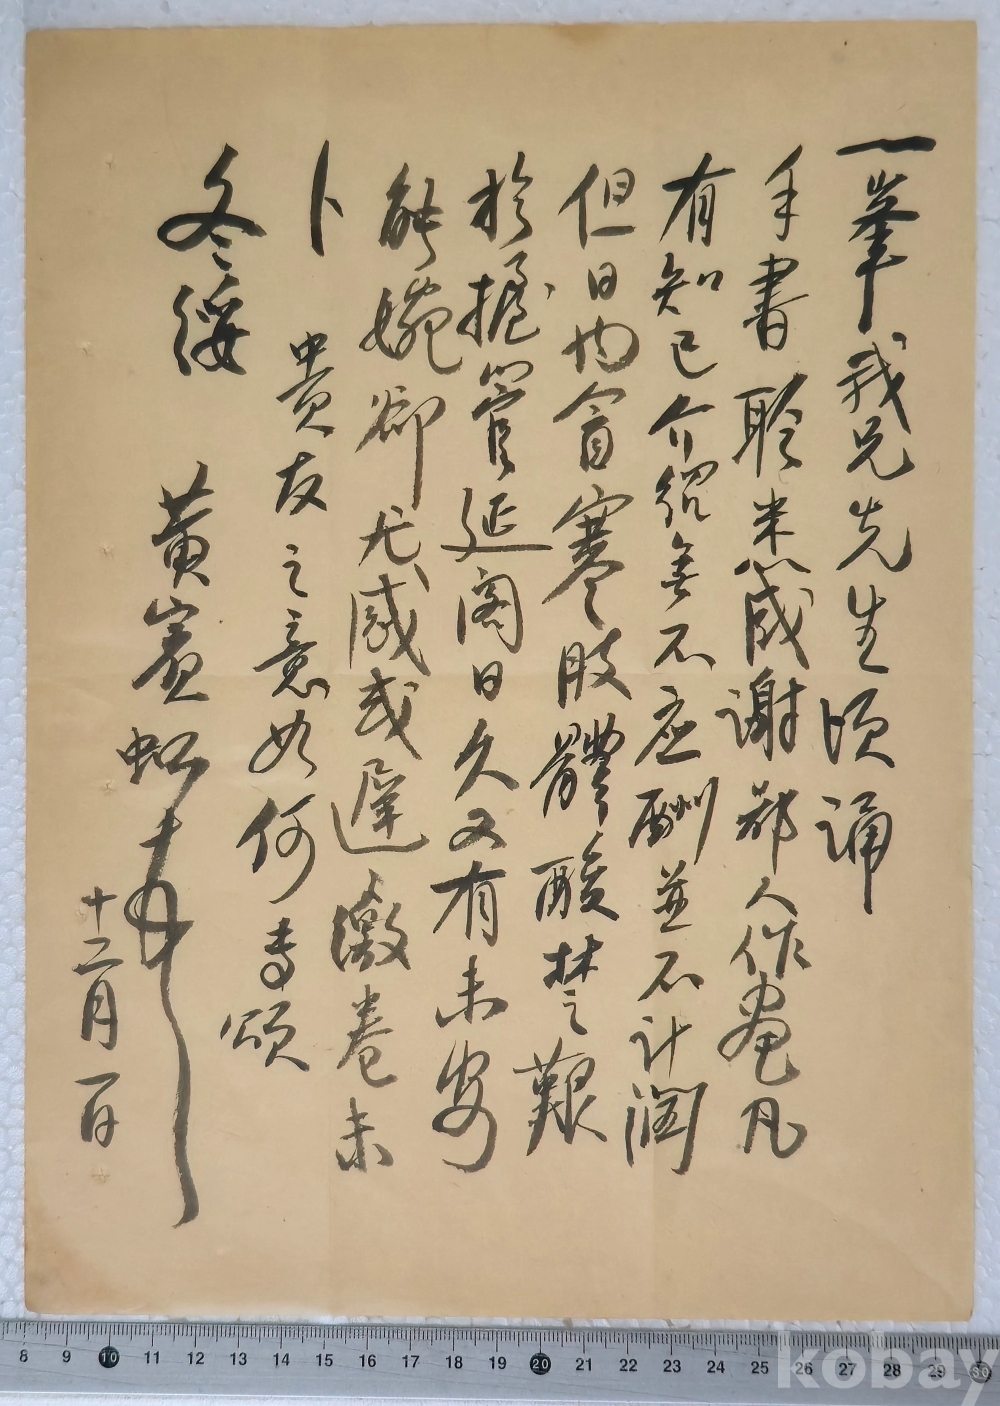 一峯我兄先生頃誦
手書聆悉感謝鄙人作畫凡
有知己介紹無不应酬並不計潤
但日內貪寒肢體酸楚艱
於握管延阁日久又有未安
能婉卻尤感或遲激卷未
卜貴友之意如何専頌
冬綏
黃賓虹
十二月一日
8 9 10 11 12 13 14 15 16 17 18 19 20 21 22 23 24 25 26 27 28 29 30
kobay